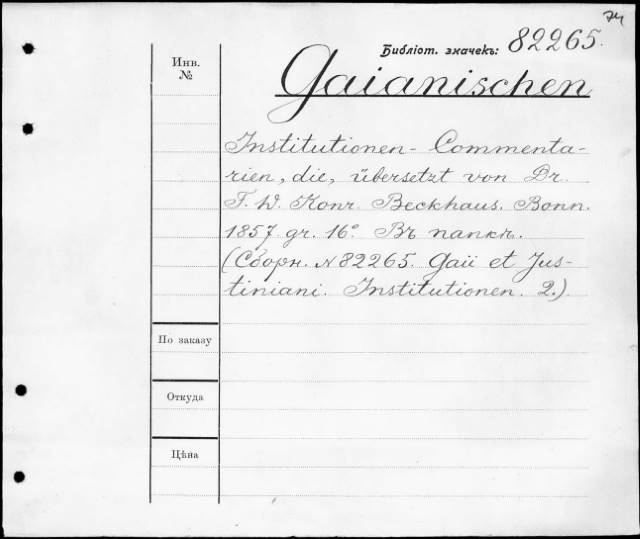 74
Библіот. значекъ: 82265.
Инв.
№
Gaianischen
Institutionen- Commenta-
rien, die, übersetzt von Dr.
F. W. Konr. Beckhaus. Bonn.
1857. gr. 16°. Въ папкѣ.
(Сборн. №82265. Gaii et Jus-
tiniani. Institutionen. 2.)
По заказу
Откуда
Цѣна